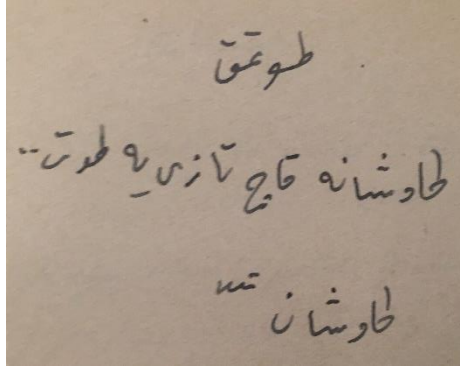 طوتمق
طاوشانه قاچ تازی یه طوت..
طاوشان